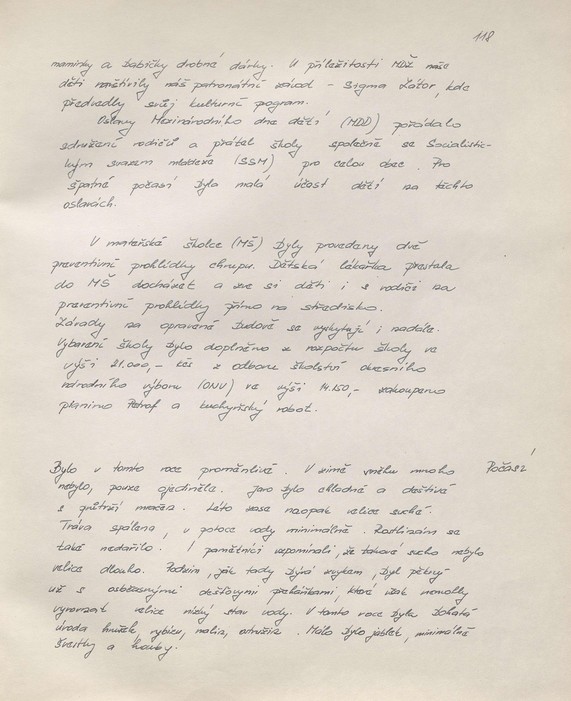 118
maminky a babičky drobné dárky. U příležitosti MDŽ naše
děti navštívily náš patronátní závod - Sigma Zátor, kde
předvedly svůj kulturní pogram.
Oslavy Mezinárodního dne dětí (MDD) pořádalo
sdružení rodičů a přátel školy společně se Socialistic-
kým svazem mládeže (SSM) pro celou obec. Pro
špatné počasí byla malá účast dětí na těchto
oslavách.
V mateřské školce (MŠ) byly provedany dvě
preventivní prohlídky chrupu. Dětská lékařka přestala
do MŠ docházet a zve si děti i s rodiči na
preventivní prohlídky přímo na středisko.
Závady na opravené budově se vyskytují i nadále.
Vybavení školy bylo doplněno z rozpočtu školy ve
výši 21.000,- kčs z odboru školství okresního
národního výboru (ONV) ve výši 14.150,- zakoupeno
pianino Petrof a kuchyňský robot.
Bylo v tomto roce proměnlivé. V zimě sněhu mnoho Počasí
nebylo, pouze ojediněle. Jaro bylo chladné a deštivé
s  Léto zase naopak velice suché.
Tráva spálena, v potoce vody minimálně. Rostlinám se
také nedařilo. I pamětníci vzpomínali, že takové sucho nebylo
velice dlouho. Podzim, jak tady bývá zvykem, byl pěkný
už s občasnými dešťovými přeháňkami, které však nemohly
vyrovnat velice nízký stav vody. V tomto roce byla bohatá
úroda hrušek, rybízu, malin, ostružin. Málo bylo jablek, minimálně
švestky a houby.